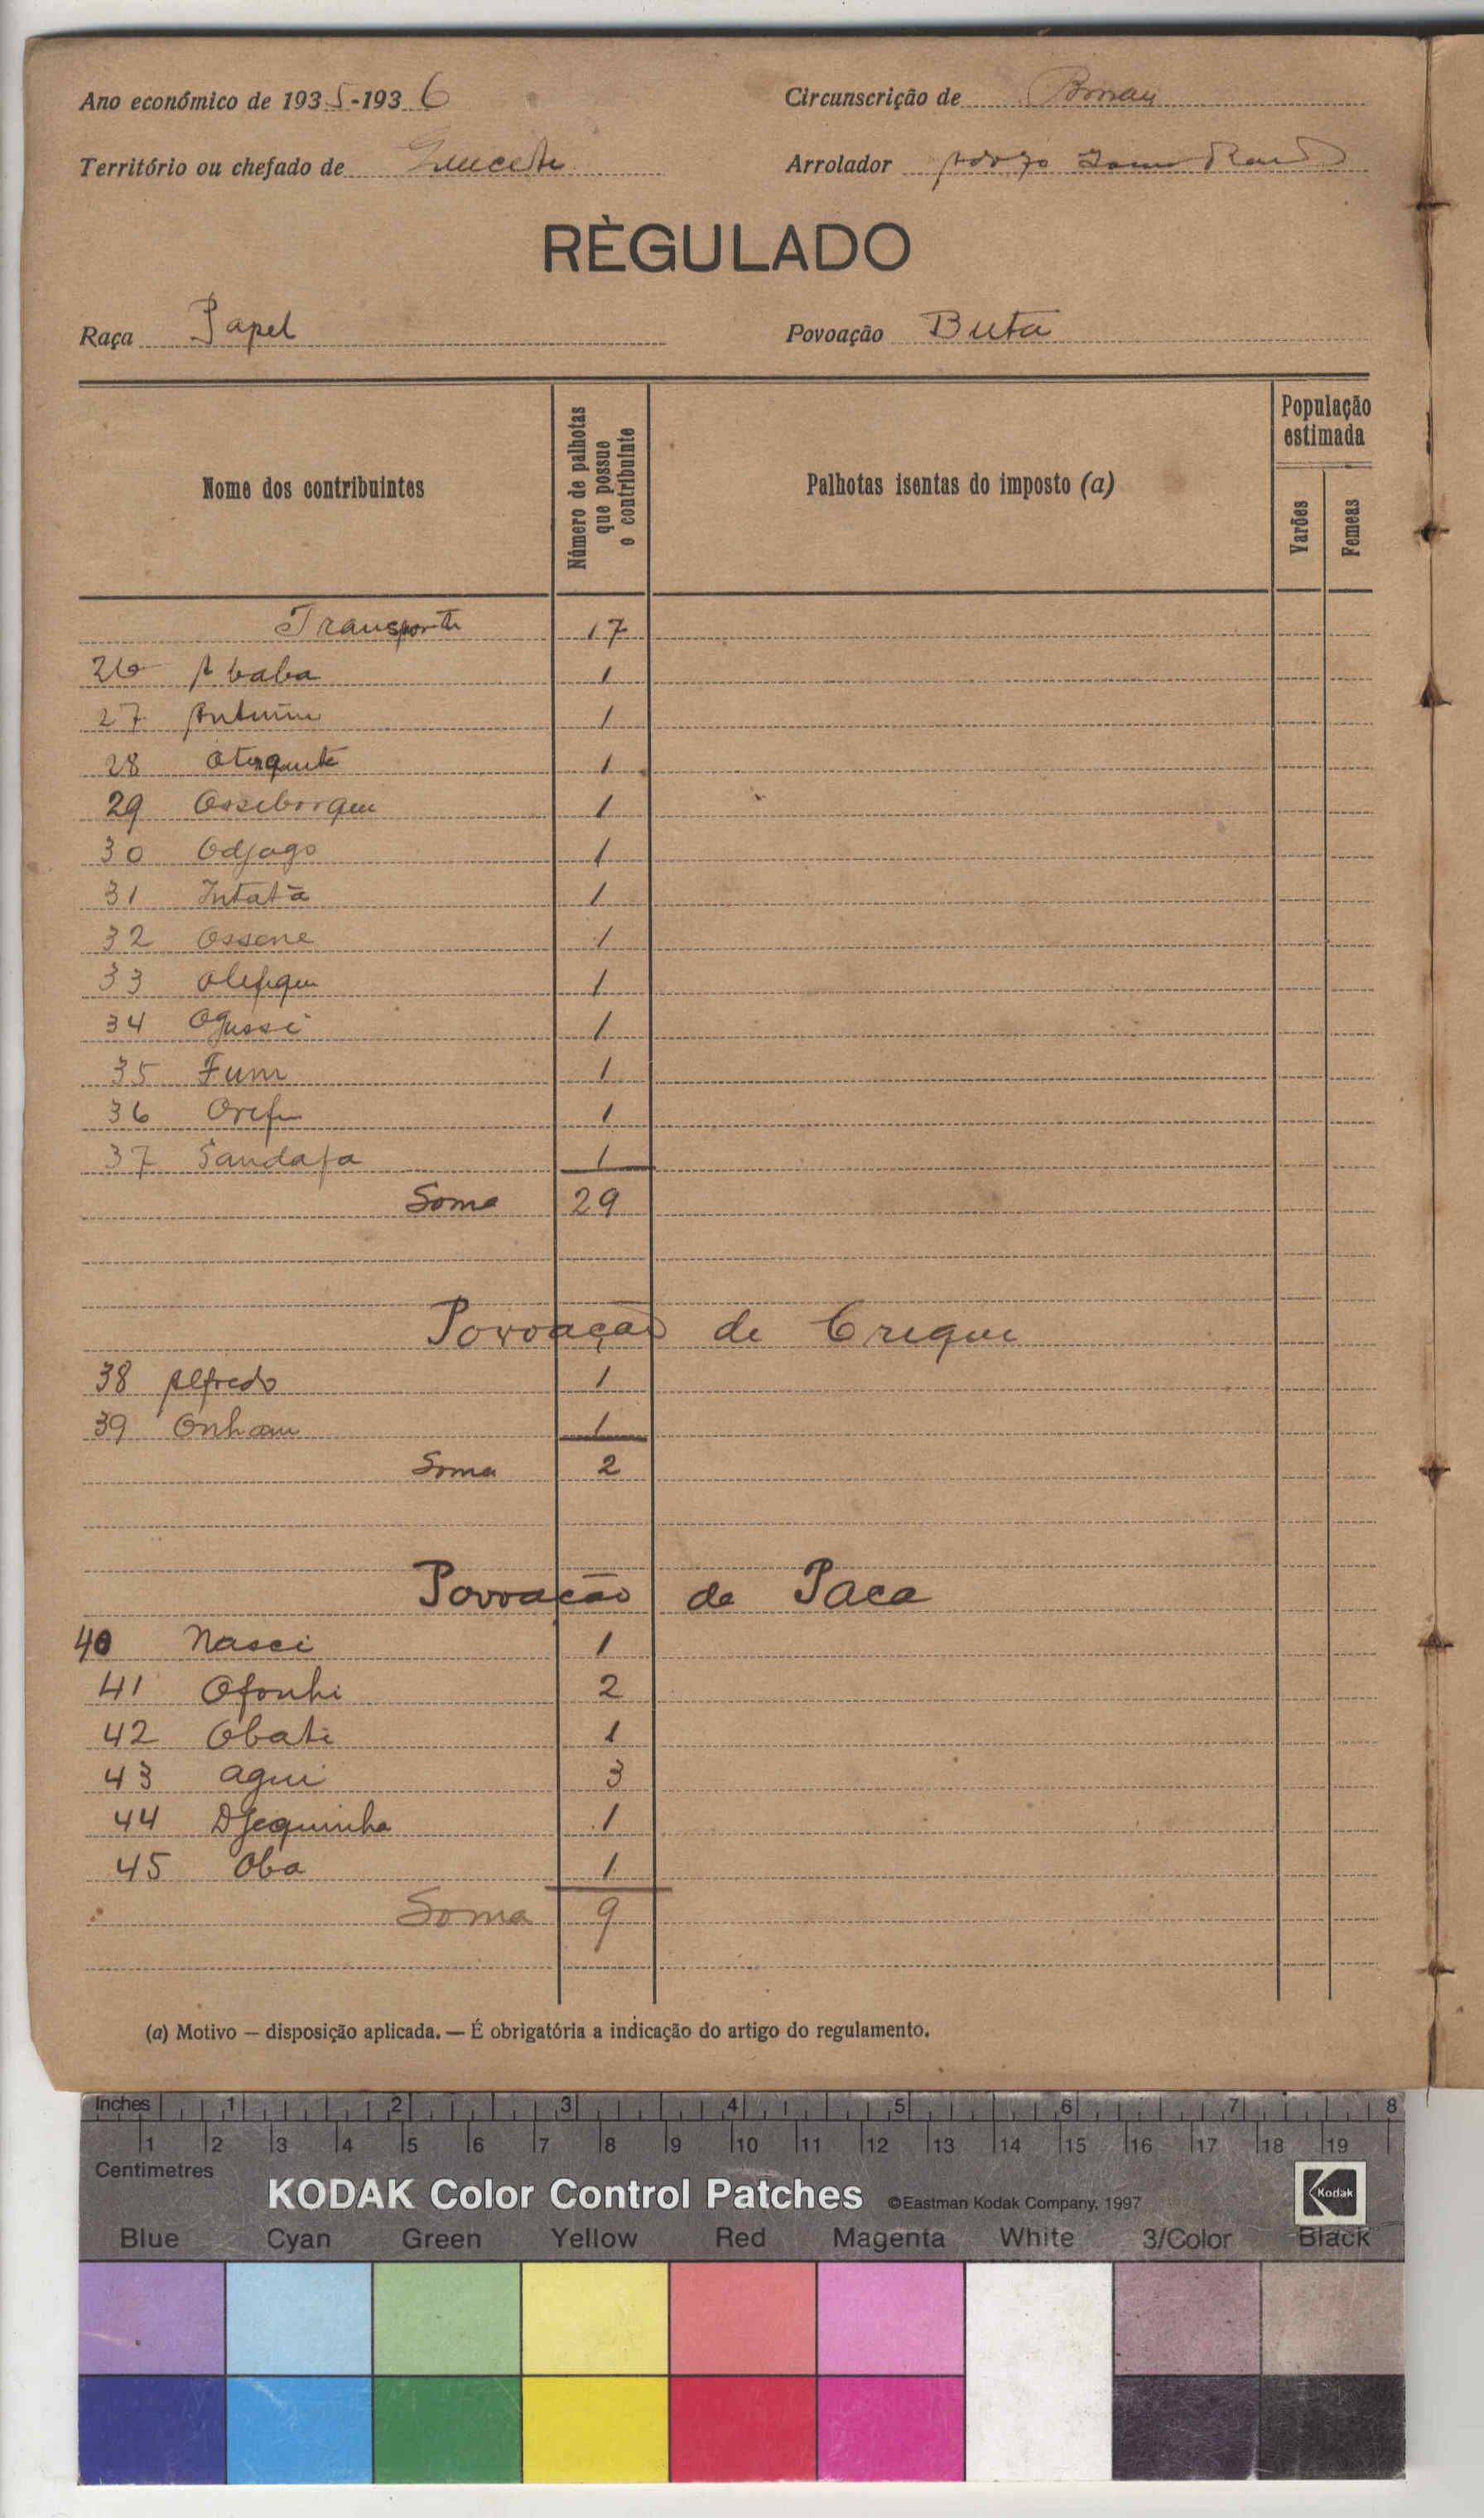 Ano económico de 1935-1936
Circunscrição de
Território ou chefado de
Arrolador
RÈGULADO
Raça Papel
Povoação Buta
Nome dos contribuintes
Número de palhotas que possue o contribuinte
Palhotas isentas do imposto (a)
População estimada
Varões
Femeas
Transporte 17
26 Ababa 1
27 1
28 1
29 1
30 Odjago 1
31 Intatá 1
32 Ossene 1
33 1
34 Ogussi 1
35 Fum 1
36 1
37 Sandafa 1
Soma 29
Povoação de Crique
38 Alfredo 1
39 Onhau 1
Soma 2
Povoação de Paca
40 Nasci 1
41 Ofonhi 2
42 Obati 1
43 Agui 3
44 Djequinha 1
45 Oba 1
Soma 9
(a) Motivo — disposição aplicada. — É obrigatória a indicação do artigo do regulamento.
Inches 1 2 3 4 5 6 7 8
1 2 3 4 5 6 7 8 9 10 11 12 13 14 15 16 17 18 19
Centimetres
KODAK Color Control Patches ©Eastman Kodak Company, 1997 Kodak
Blue Cyan Green Yellow Red Magenta White 3/Color Black